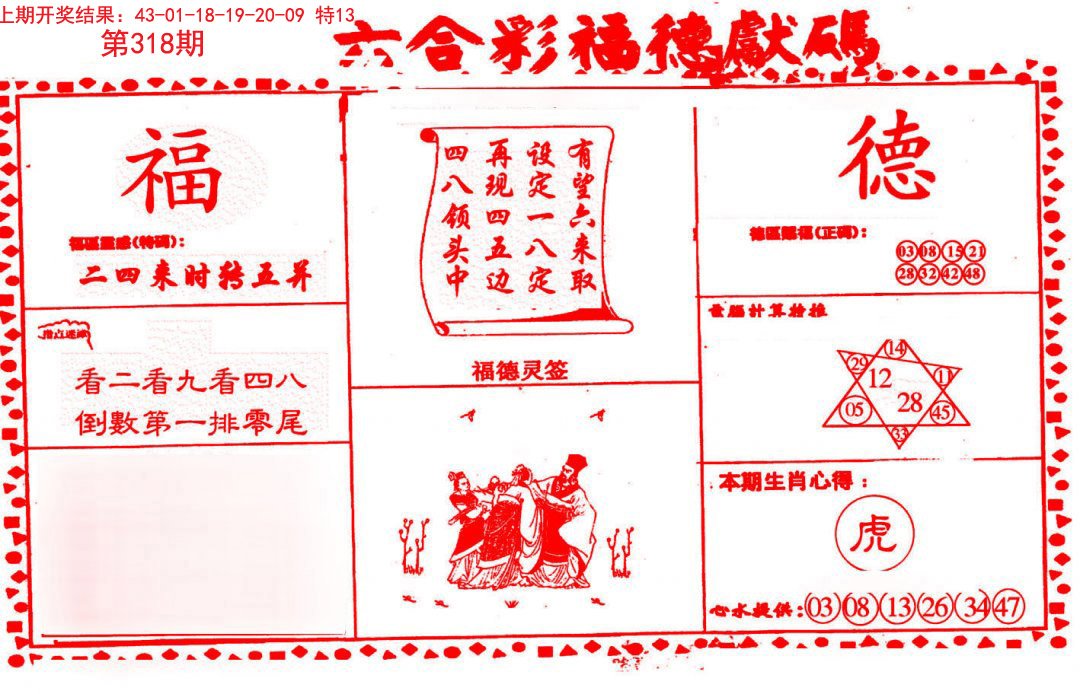 上期开奖结果：43-01-18-19-20-09 特13
第318期
六合彩福德獻碼
福
福區靈感(特碼)：
二四来时转五并
指点迷津
看二看九看四八
倒數第一排零尾
有望六来取
设定一八定
再现四五边
四八领头中
福德灵签
德
德區賜福(正碼)：
03 08 15 21
28 32 42 48
電腦計算特推
14
29
12
11
05
28
45
33
本期生肖心得：
虎
心水提供：03 08 13 26 34 47